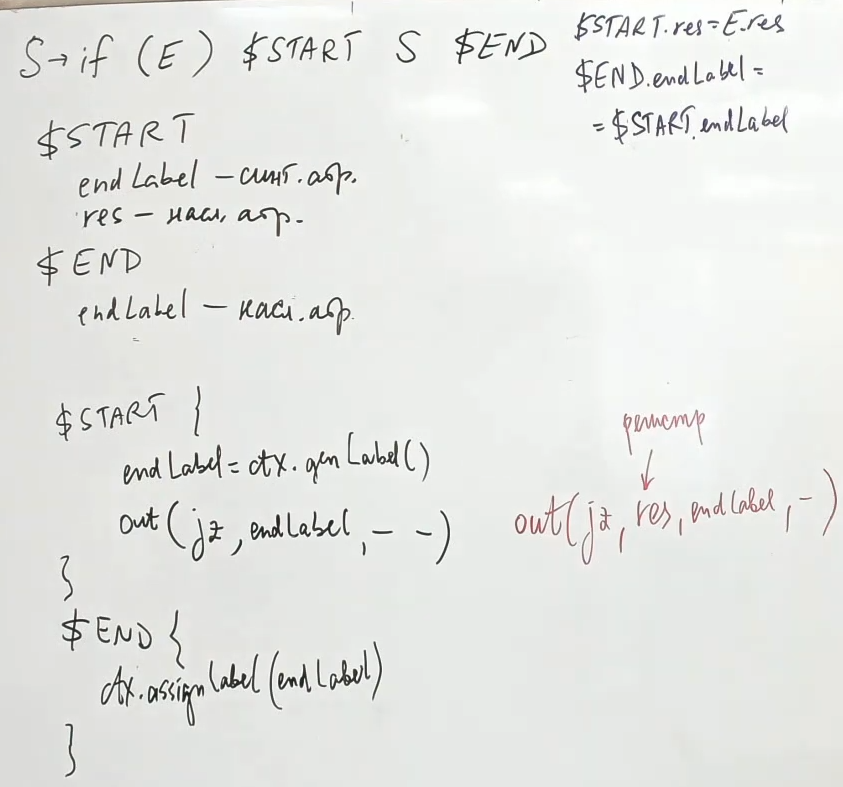 S→if (E) $START S $END
$START.res=E.res
$END.endLabel=
=$START.endLabel
$START
endLabel – синт. атр.
res – насл. атр.
$END
endLabel – насл. атр.
$START {
endLabel = ctx.genLabel()
out(jz, endLabel, – –)
}
регистр
out(jz, res, endLabel, –)
$END {
ctx.assignLabel(endLabel)
}